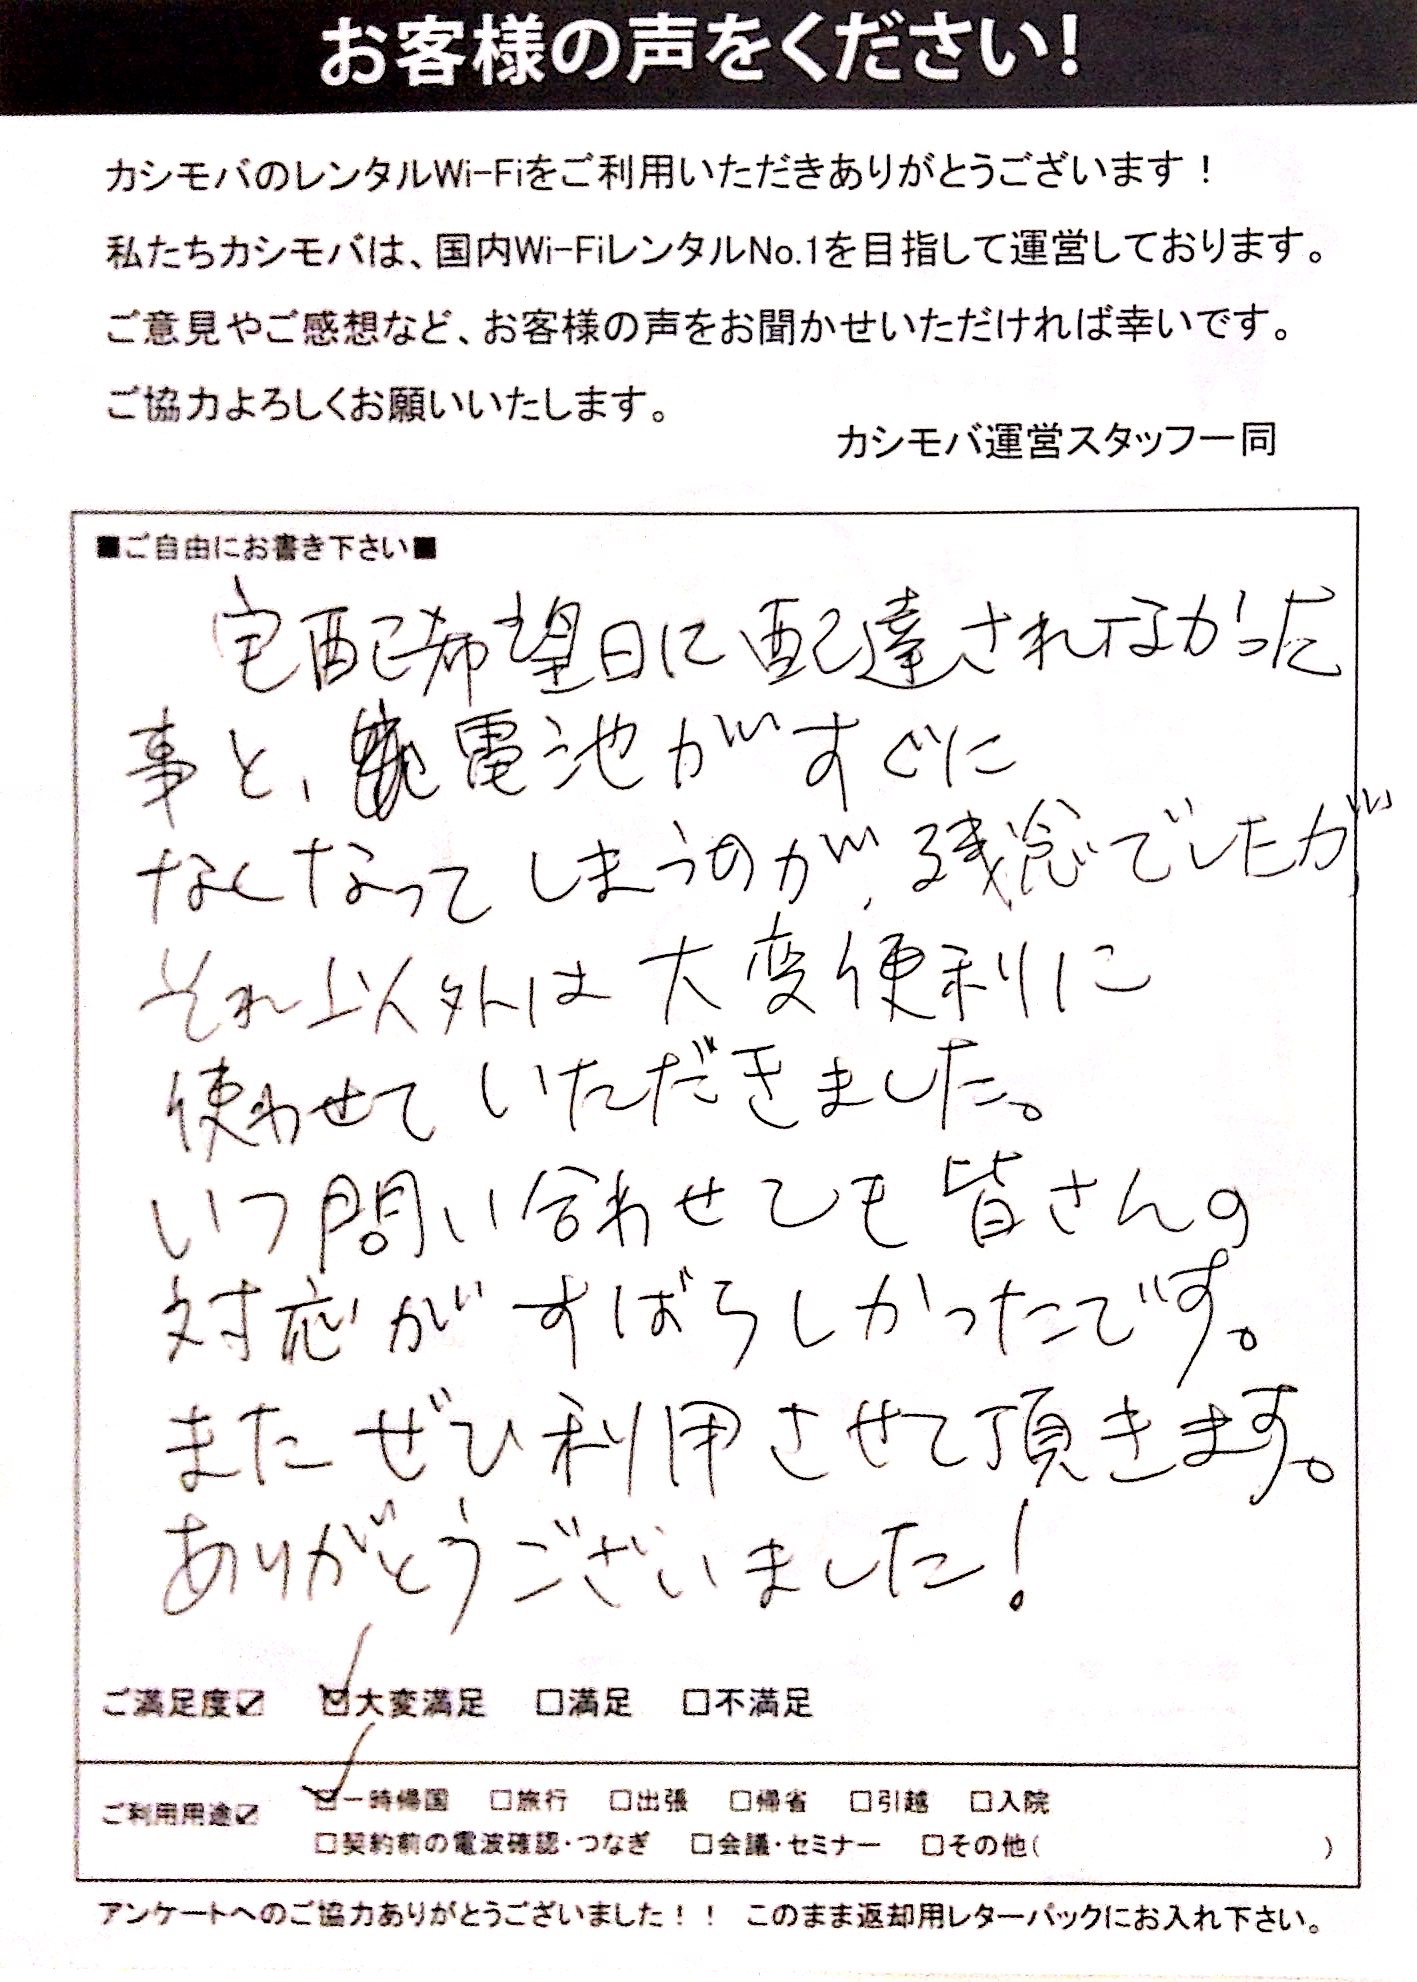 お客様の声をください！
カシモバのレンタルWi-Fiをご利用いただきありがとうございます！
私たちカシモバは、国内Wi-FiレンタルNo.1を目指して運営しております。
ご意見やご感想など、お客様の声をお聞かせいただければ幸いです。
ご協力よろしくお願いいたします。
カシモバ運営スタッフ一同
■ご自由にお書き下さい■
宅配希望日に配達されなかった
事と、電池がすぐに
なくなってしまうのが、残念でしたが
それ以外は大変便利に
使わせていただきました。
いつ問い合わせても皆さんの
対応がすばらしかったです。
またぜひ利用させて頂きます。
ありがとうございました！
ご満足度☑ ☑大変満足 □満足 □不満足
ご利用用途☑ ☑一時帰国 □旅行 □出張 □帰省 □引越 □入院
□契約前の電波確認・つなぎ □会議・セミナー □その他( )
アンケートへのご協力ありがとうございました！！ このまま返却用レターパックにお入れ下さい。